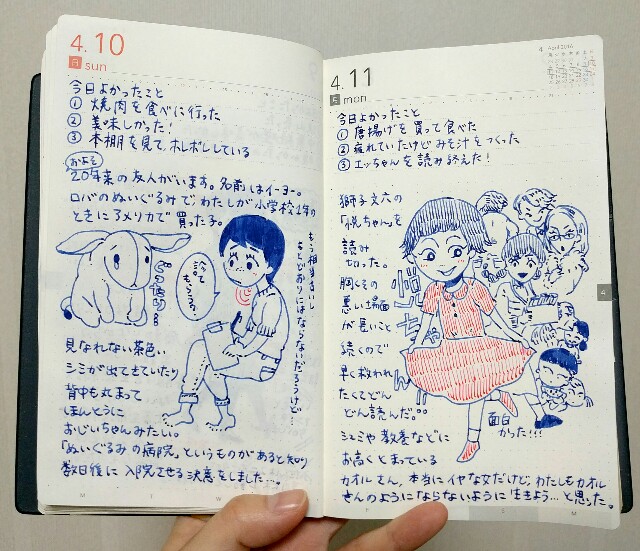 4.10
日 sun
今日よかったこと
① 焼肉を食べに行った
② 美味しかった!
③ 本棚を見て、ホレボレしている
およそ
20年来の友人がいます。名前はイーヨー。
ロバのぬいぐるみで、わたしが小学校1年の
ときにアメリカで買った子。
もう相当古いし
もとどおりにはならないだろうけど…
治って
もらうろ
見なれない茶色い
シミが出てきていたり
背中も丸まって
ほんとうに
おじいちゃんみたい。
「ぬいぐるみの病院」というものがあると知り
数日後に入院させる決意をしました…。
4.11
月 mon
4 April 2016
今日よかったこと
① 唐揚げを買って食べた
② 疲れていたけどみそ汁をつくった
③ エッちゃんを読み終えた!
獅子文六の
「悦ちゃん」を
読み
切った。
胸くその
悪い場面
が長いこと
続くので
早く救われ
たくてどん
どん読んだ。
悦ちゃん
面白
かった!!!
シェミや教養などに
お高くとまっている
カオルさん、本当にイヤな女だけど、わたしもカオル
さんのようにならないように生きよう…と思った。
4